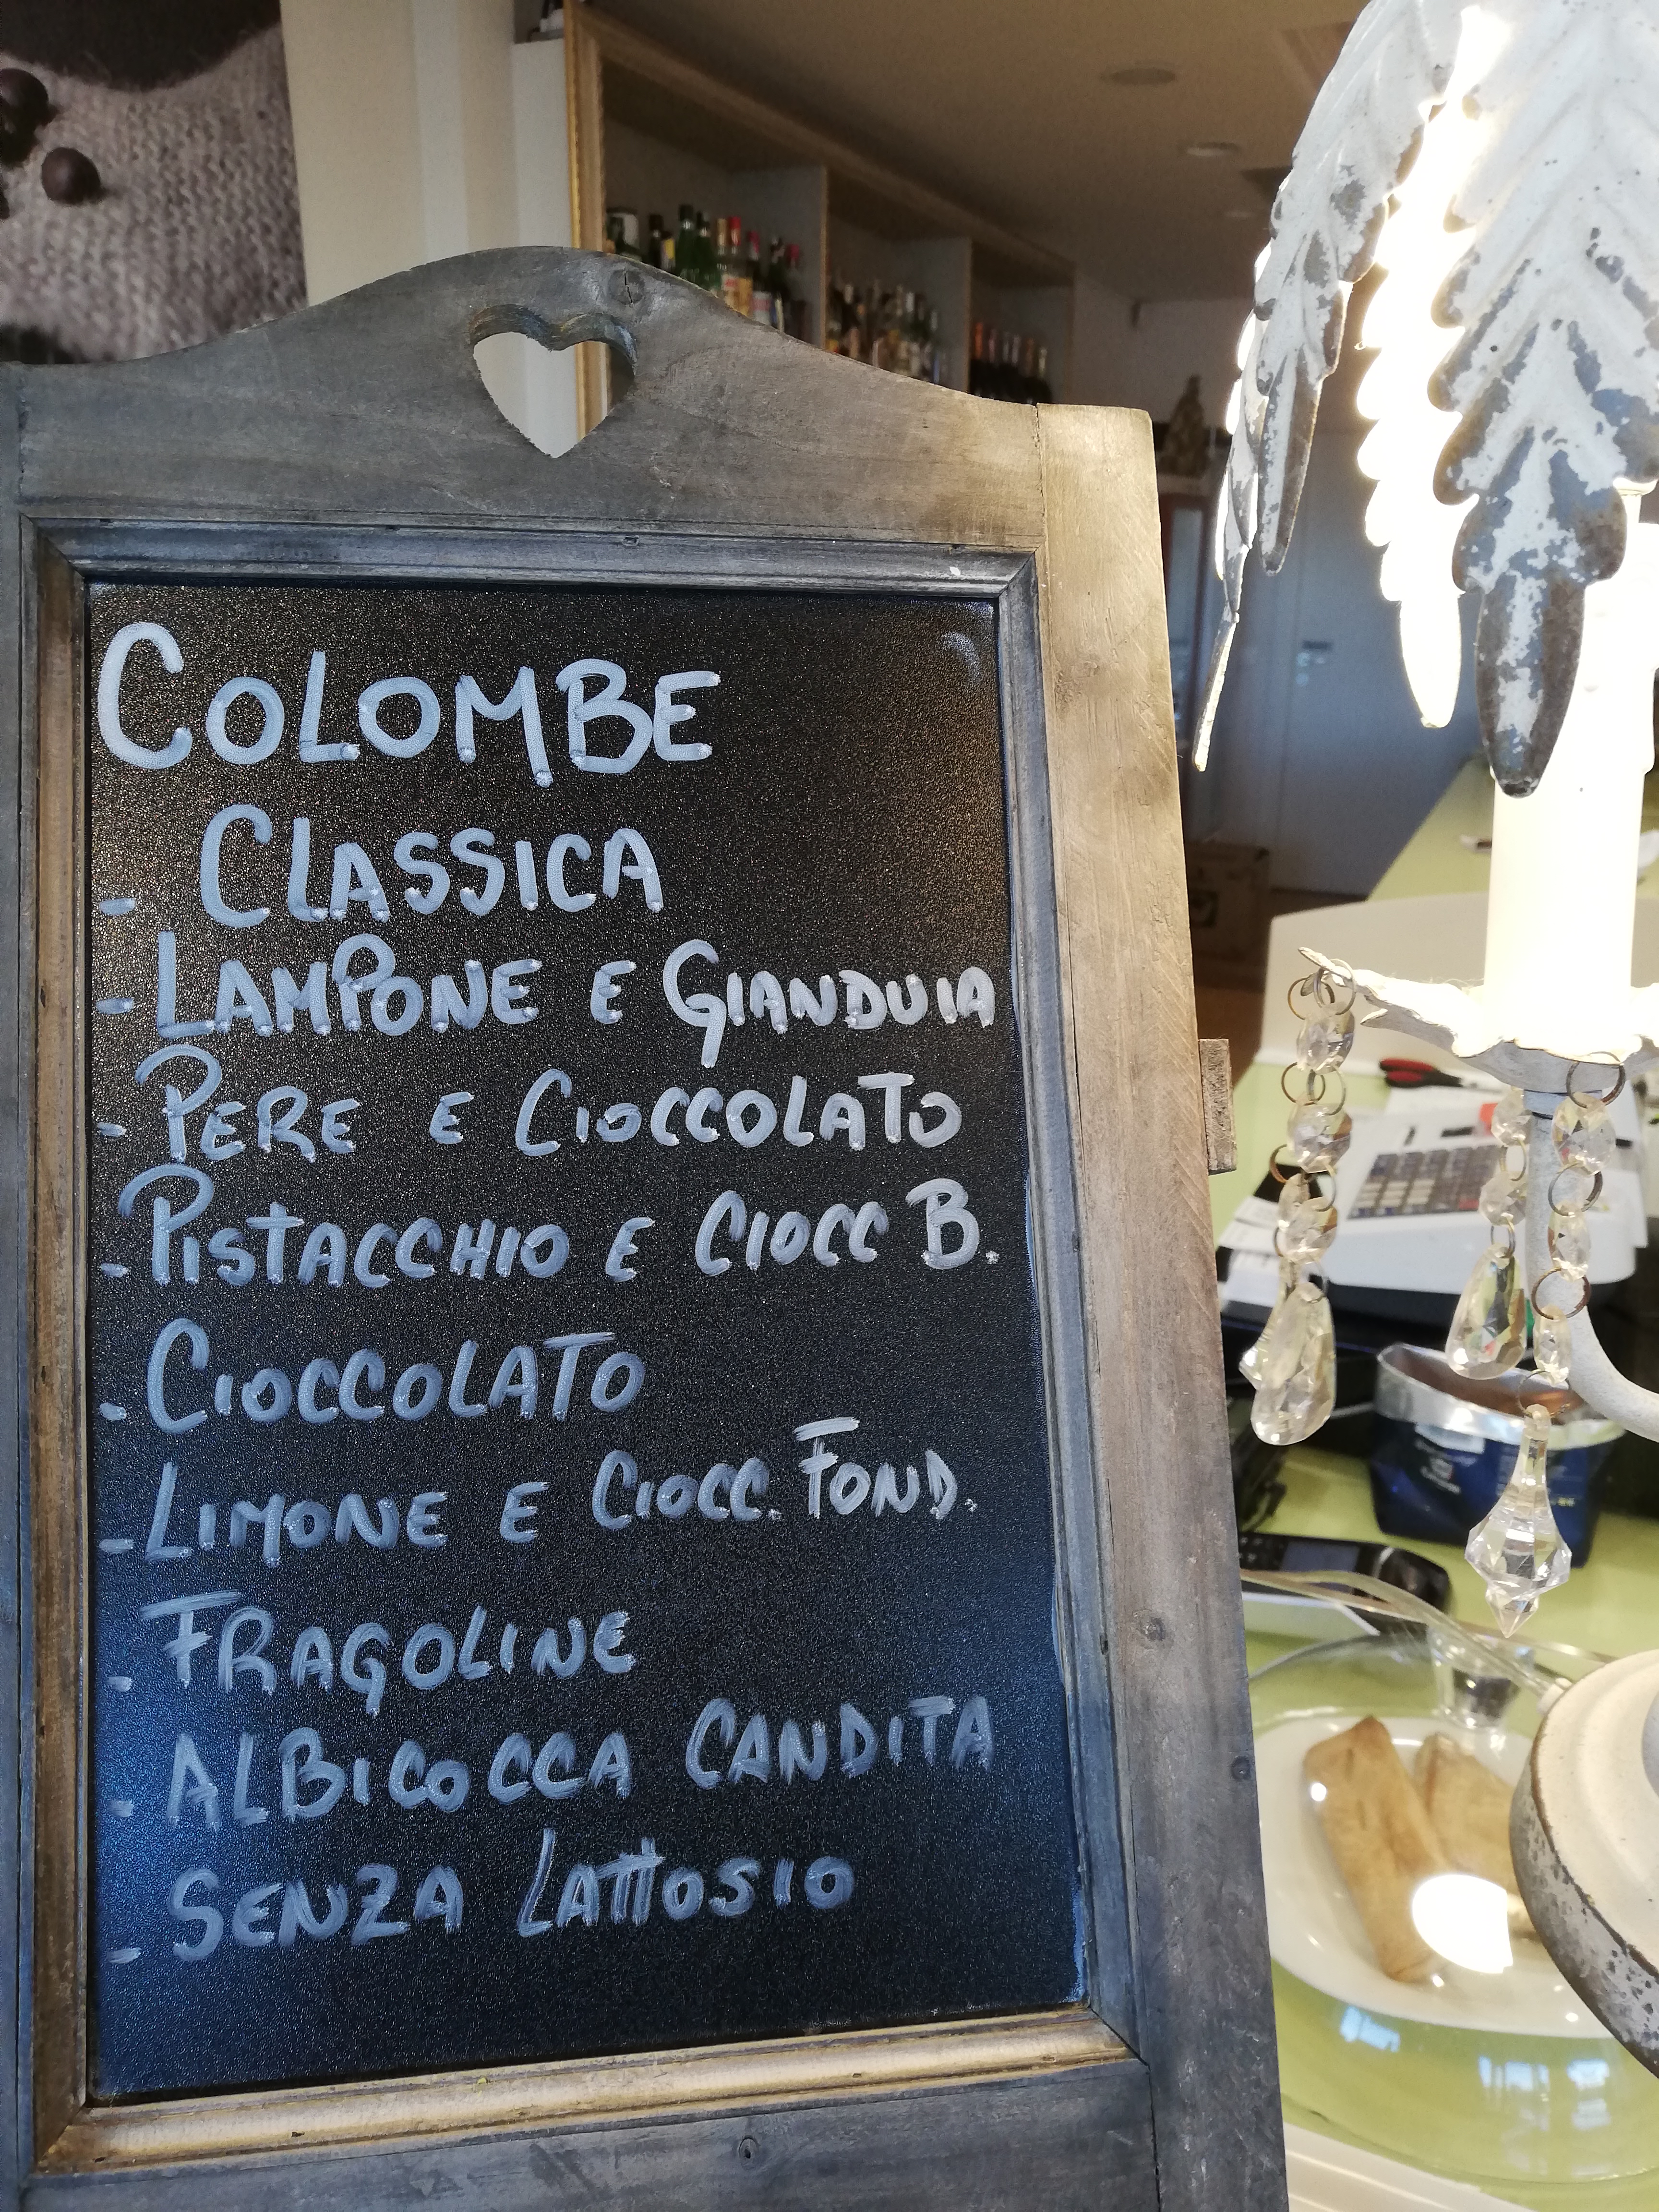 COLOMBE
- CLASSICA
- LAMPONE E GIANDUIA
- PERE E CIOCCOLATO
- PISTACCHIO E CIOCC B.
- CIOCCOLATO
- LIMONE E CIOCC. FOND.
- FRAGOLINE
- ALBICOCCA CANDITA
- SENZA LATTOSIO